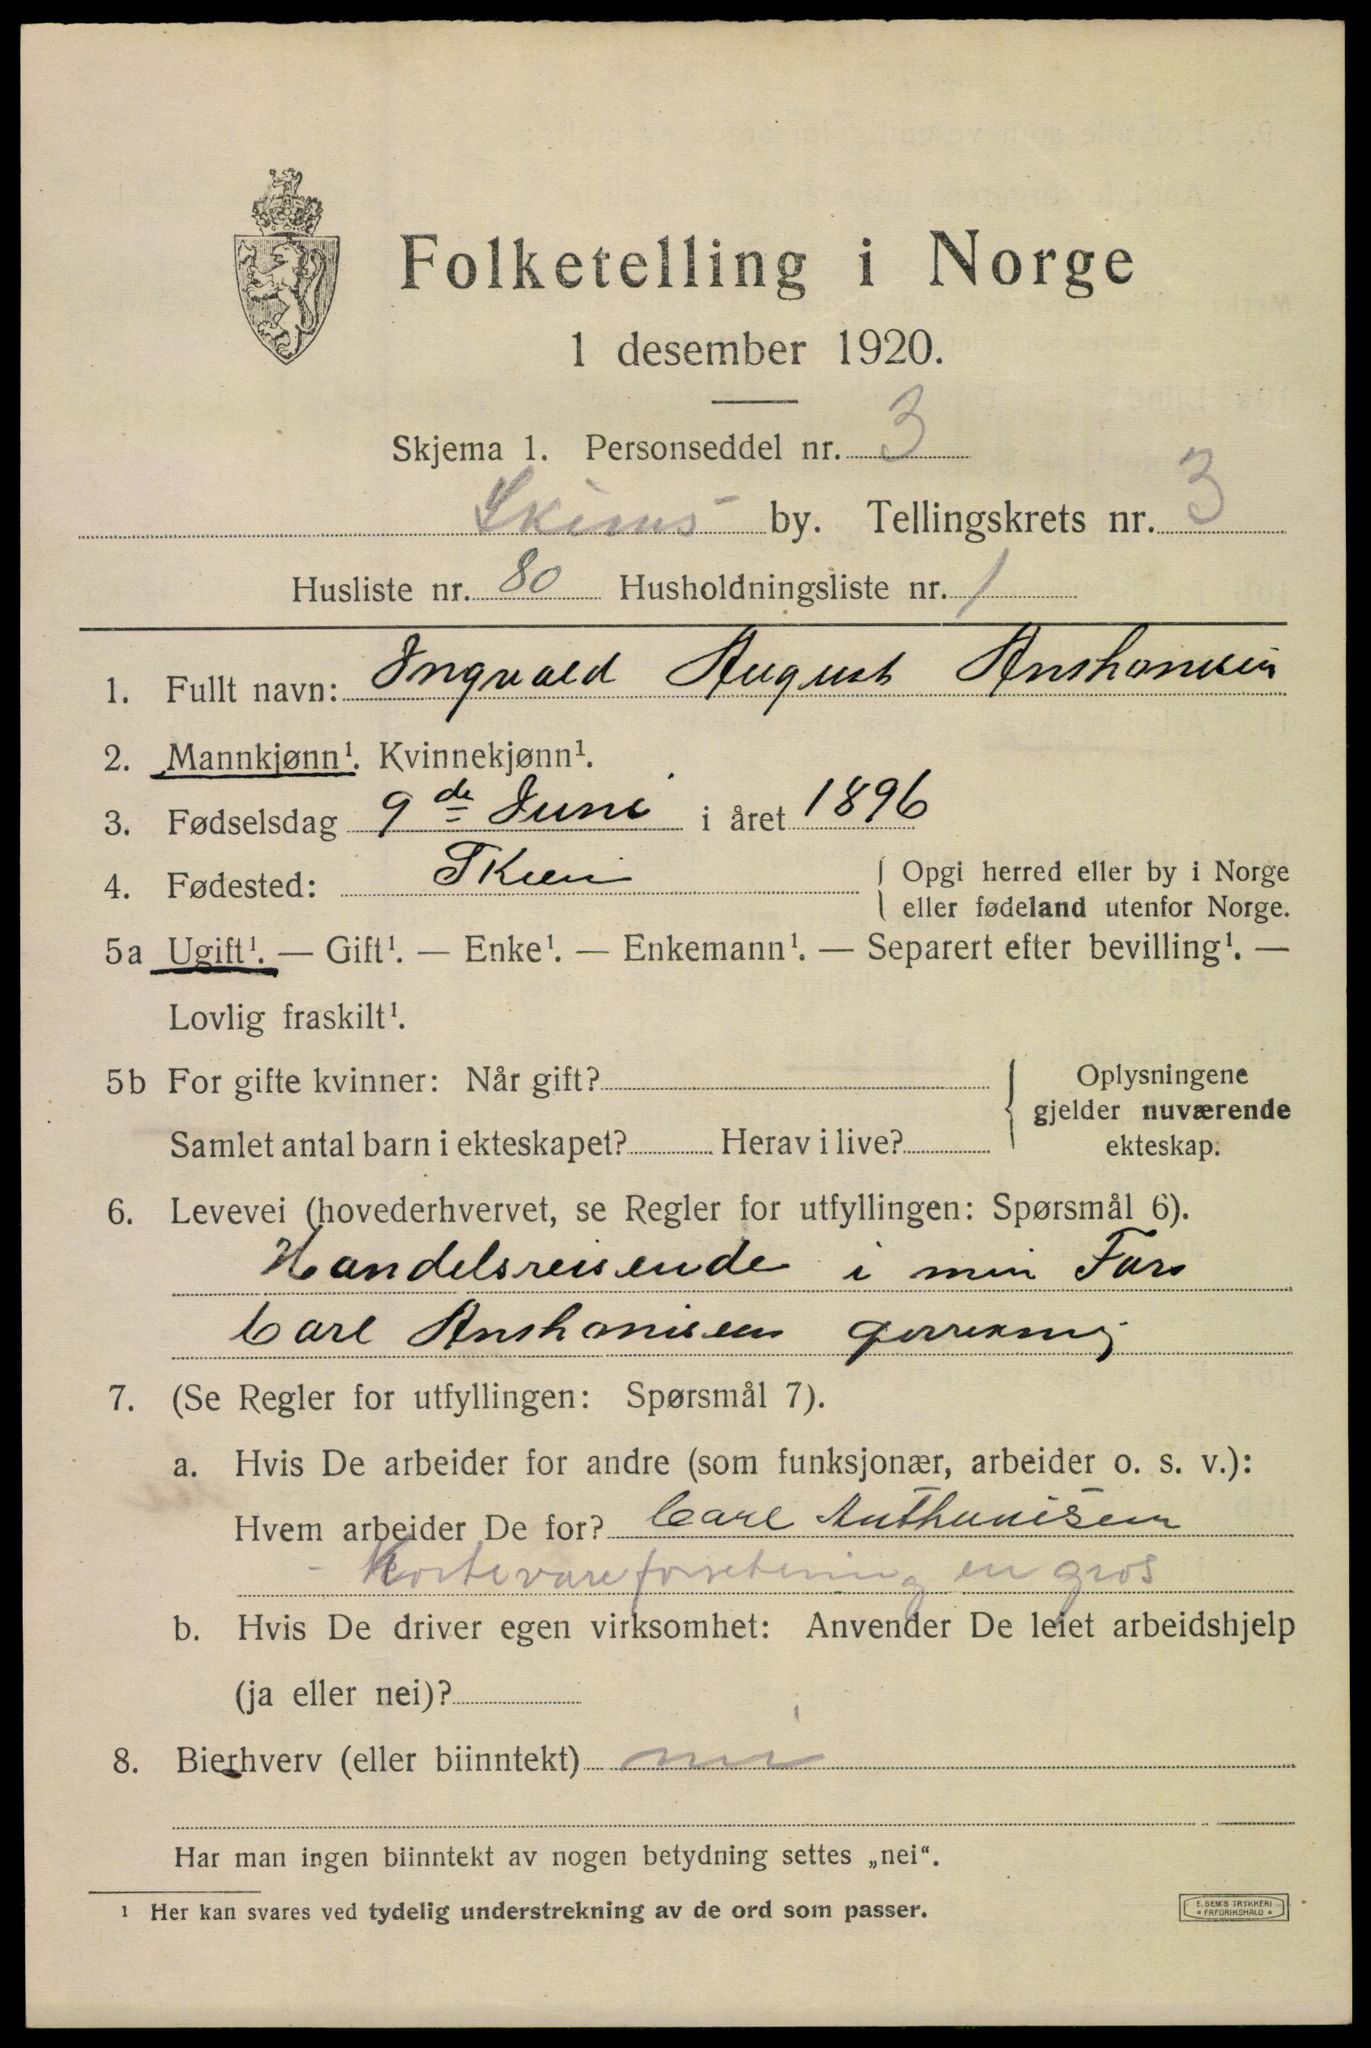 Folketelling i Norge
1 desember 1920.
Skjema 1. Personseddel nr. 3
Skiens by. Tellingskrets nr. 3
Husliste nr. 80 Husholdningsliste nr. 1
1. Fullt navn: Ingvald August Anthonisen
2. Mannkjønn¹. Kvinnekjønn¹.
3. Fødselsdag 9de Juni i året 1896
4. Fødested: Skien { Opgi herred eller by i Norge
eller fødeland utenfor Norge.
5a Ugift¹. — Gift¹. — Enke¹. — Enkemann¹. — Separert efter bevilling¹. —
Lovlig fraskilt¹.
5b For gifte kvinner: Når gift? { Oplysningene
gjelder nuværende
Samlet antal barn i ekteskapet? Herav i live? ekteskap.
6. Levevei (hovederhvervet, se Regler for utfyllingen: Spørsmål 6).
Handelsreisende i min Fars
Carl Anthonisens
7. (Se Regler for utfyllingen: Spørsmål 7).
a. Hvis De arbeider for andre (som funksjonær, arbeider o. s. v.):
Hvem arbeider De for? Carl Anthonisen
- Kortevareforretning en gros
b. Hvis De driver egen virksomhet: Anvender De leiet arbeidshjelp
(ja eller nei)?
8. Bierhverv (eller biinntekt) nei
Har man ingen biinntekt av nogen betydning settes „nei“.
¹ Her kan svares ved tydelig understrekning av de ord som passer.
E. SEM'S TRYKKERI
FREDRIKSHALD